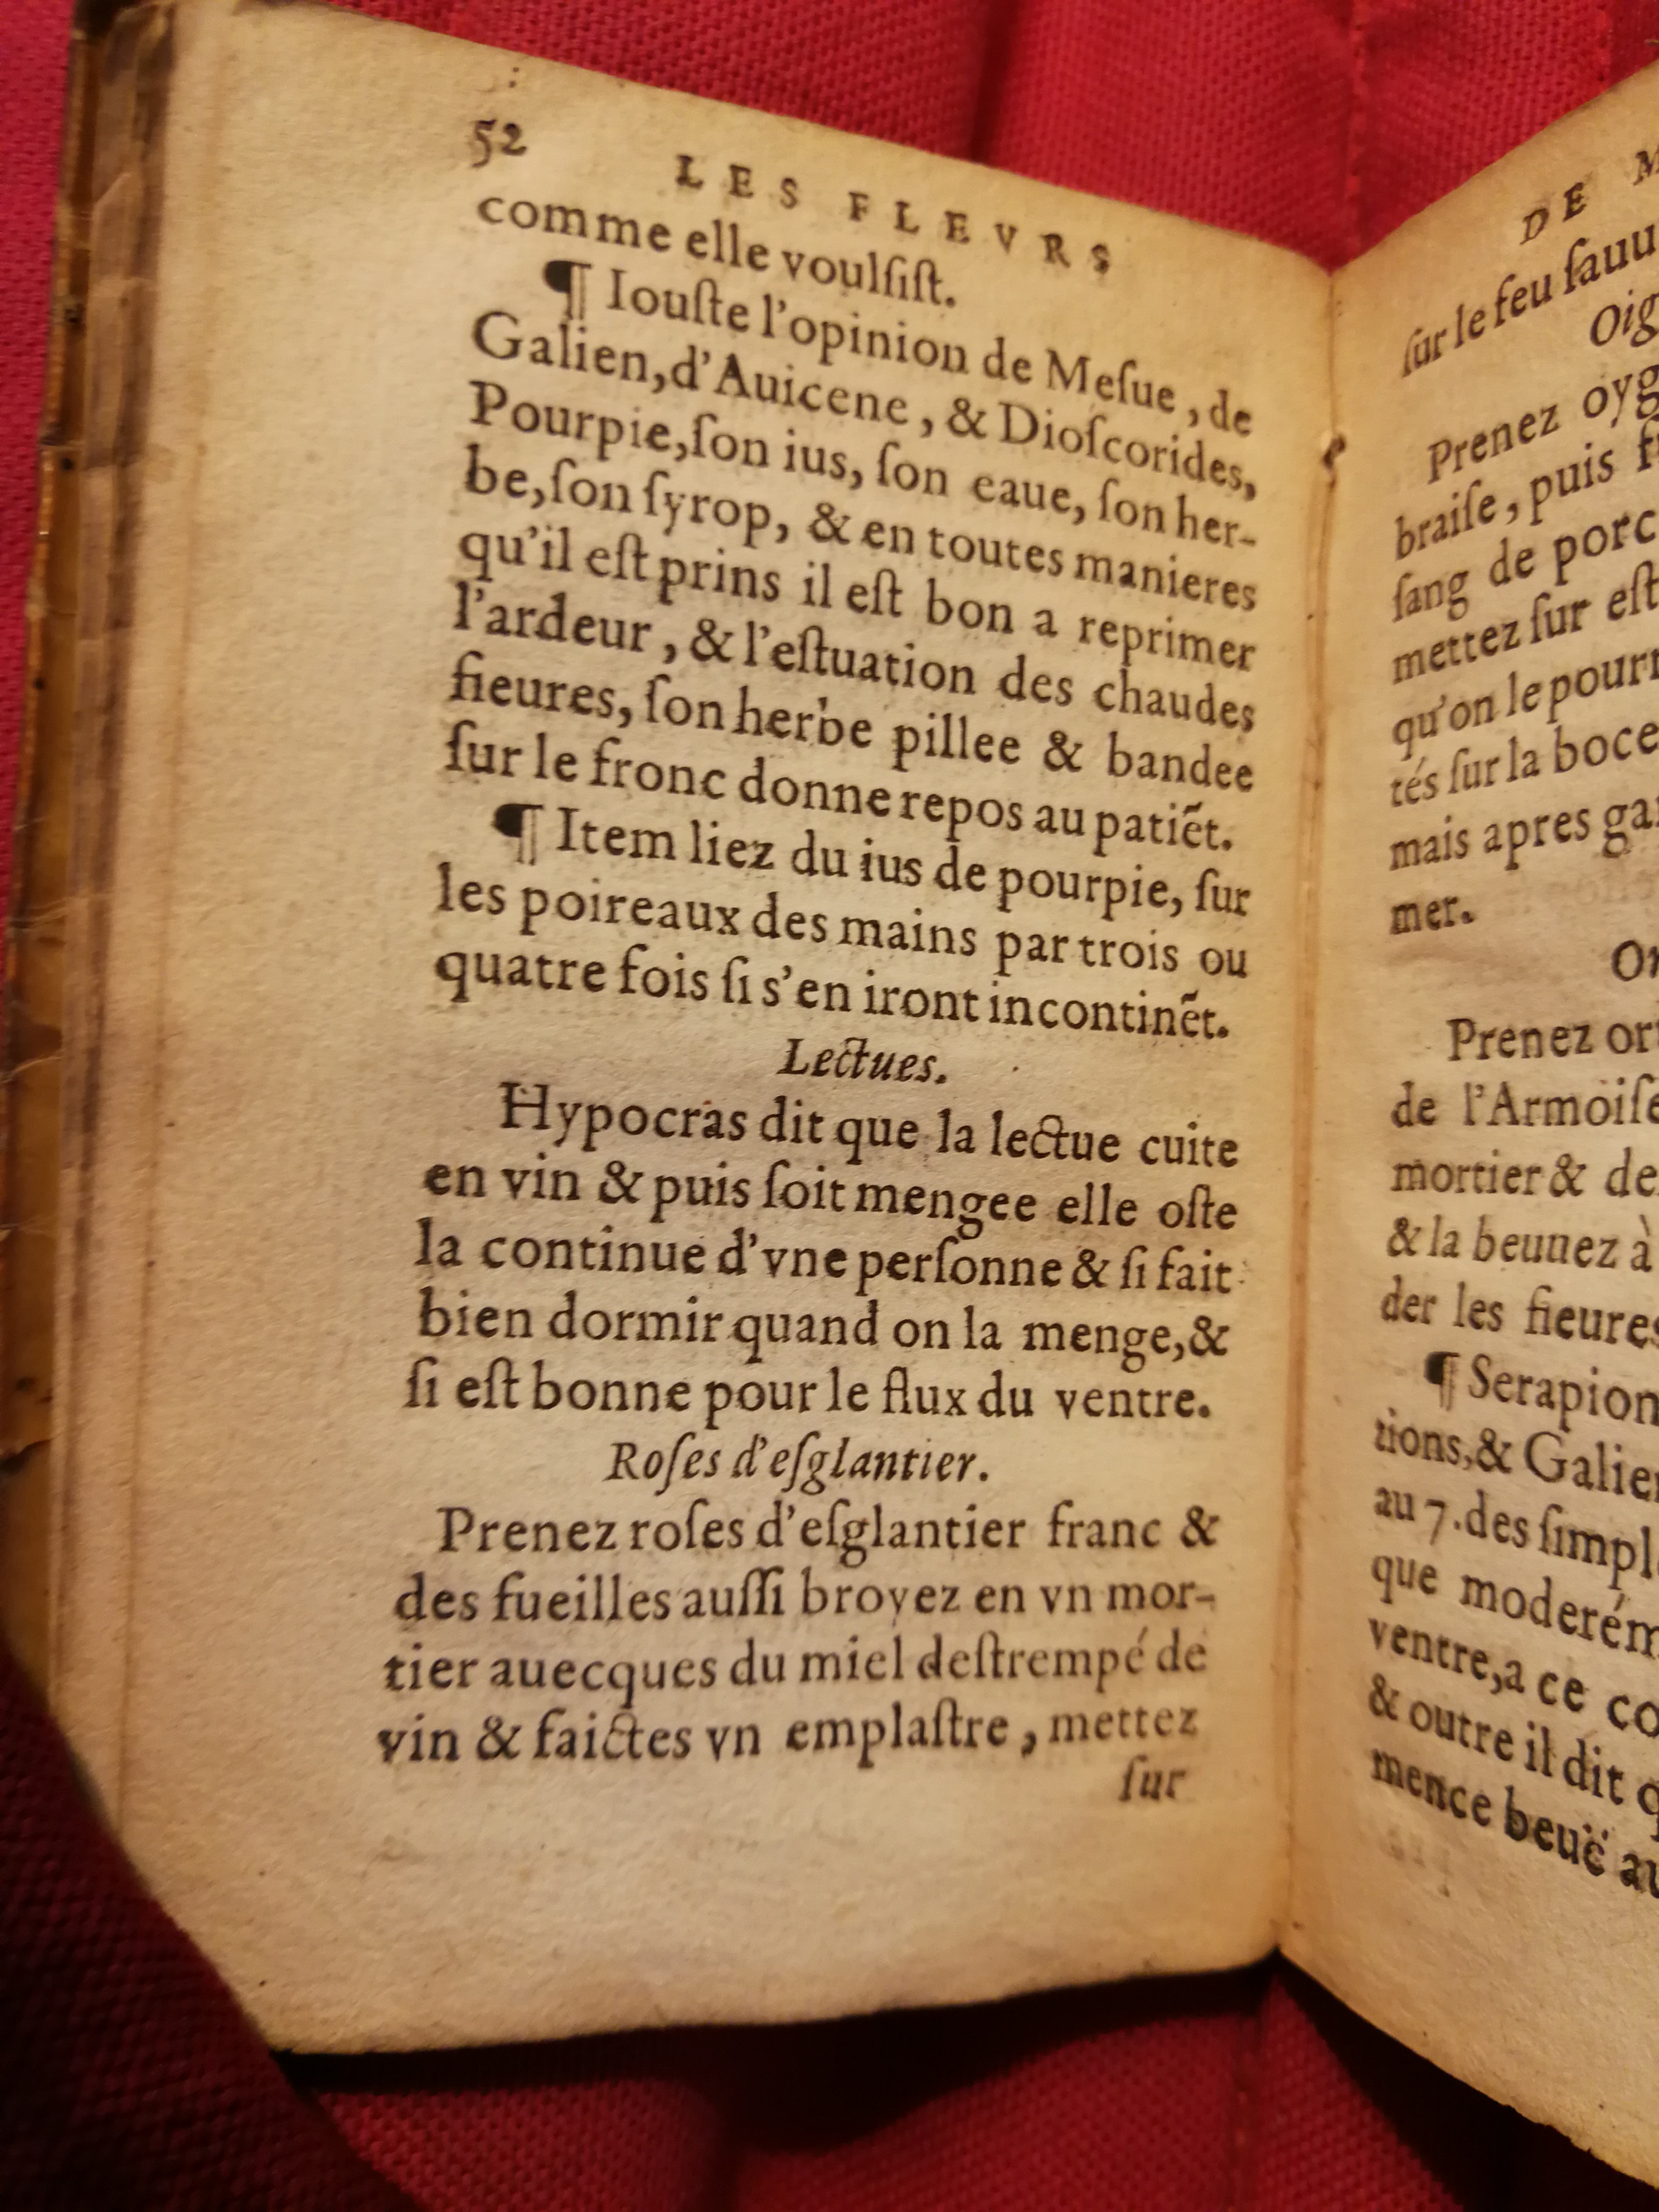 52
LES FLEVRS
comme elle voulſiſt.
¶ Iouſte l'opinion de Meſue, de
Galien, d'Auicene, & Dioſcorides,
Pourpie, ſon ius, ſon eaue, ſon her-
be, ſon ſyrop, & en toutes manieres
qu'il eſt prins il eſt bon a reprimer
l'ardeur, & l'eſtuation des chaudes
fieures, ſon herbe pillee & bandee
ſur le fronc donne repos au patiēt.
¶ Item liez du ius de pourpie, ſur
les poireaux des mains par trois ou
quatre fois ſi s'en iront incontinēt.
Lectues.
Hypocras dit que la lectue cuite
en vin & puis ſoit mengee elle oſte
la continue d'vne perſonne & ſi fait
bien dormir quand on la menge, &
ſi eſt bonne pour le flux du ventre.
Roſes d'eſglantier.
Prenez roſes d'eſglantier franc &
des fueilles auſſi broyez en vn mor-
tier auecques du miel deſtrempé de
vin & faictes vn emplaſtre, mettez
ſur
DE M
ſur le feu ſauu
Oig
Prenez oyg
braiſe, puis
ſang de porc
mettez ſur eſt
qu'on le pourr
tés ſur la boce
mais apres gar
mer.
Or
Prenez ort
de l'Armoiſe
mortier & de
& la beuuez à
der les fieures
¶ Serapion
tions, & Galien
au 7. des ſimple
que moderém
ventre, a ce co
& outre il dit q
mence beuë au